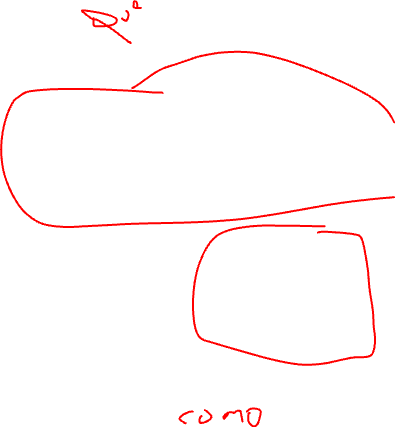 Que
como